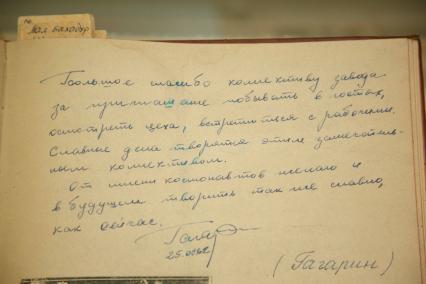 Мал Баходур
Большое спасибо коллективу завода
за приглашение побывать в гостях,
осмотреть цеха, встретиться с рабочими.
Славные дела творятся этим замечатель-
ным коллективом.
От имени космонавтов желаю и
в будущем творить так же славно,
как сейчас.
Гагар
(Гагарин)